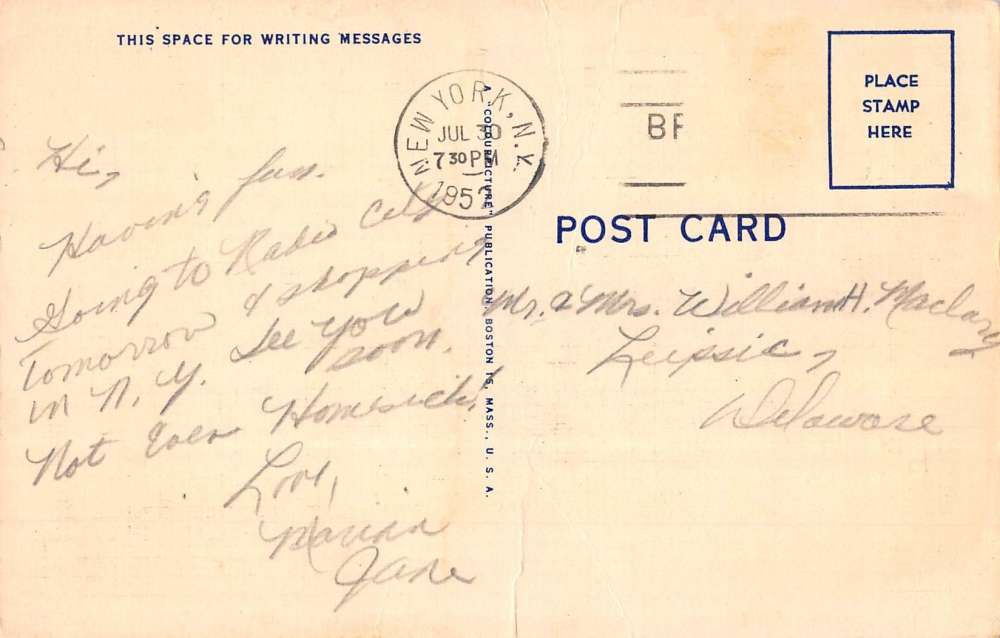 THIS SPACE FOR WRITING MESSAGES
Hi,
Having fun.
Going to Radio City
Tomorrow & shopping
in N.Y. See you
soon.
Not Even Homesick!
Love,
Jane
NEW YORK, N.Y.
JUL 30
7 30 PM
195
A "COLOURPICTURE" PUBLICATION BOSTON 15, MASS., U. S. A.
PLACE
STAMP
HERE
POST CARD
Mr. & Mrs. William H.
Leipsic,
Delaware